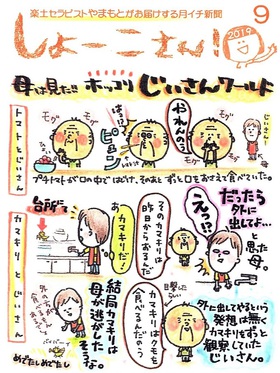 楽土セラピストやまもとがお届けする月イチ新聞
しょーこさん!
2019
9
母は見た!! ホッコリ じぃさんワールド
トマトとじぃさん
モグ
モグ
ピューン
はる!?
やれんのう
モグ
モグ
じぃさん
母
プチトマトが口の中ではじけ、そのあと ずっと口をおさえて食べていた。
カマキリとじぃさん
台所で
あ!カマキリだ!
そのカマキリは昨日からおるんだ
えっ!?
だったら外に出してよ…と思った母。
外の方がえさがあるよ
バイバーイ
結局カマキリは母が逃がしたそうな。
めでたしめでたし
カマキリはクモを食べるんだのう
外に出してやるという発想は無くカマキリをずっと観察していたじぃさん。